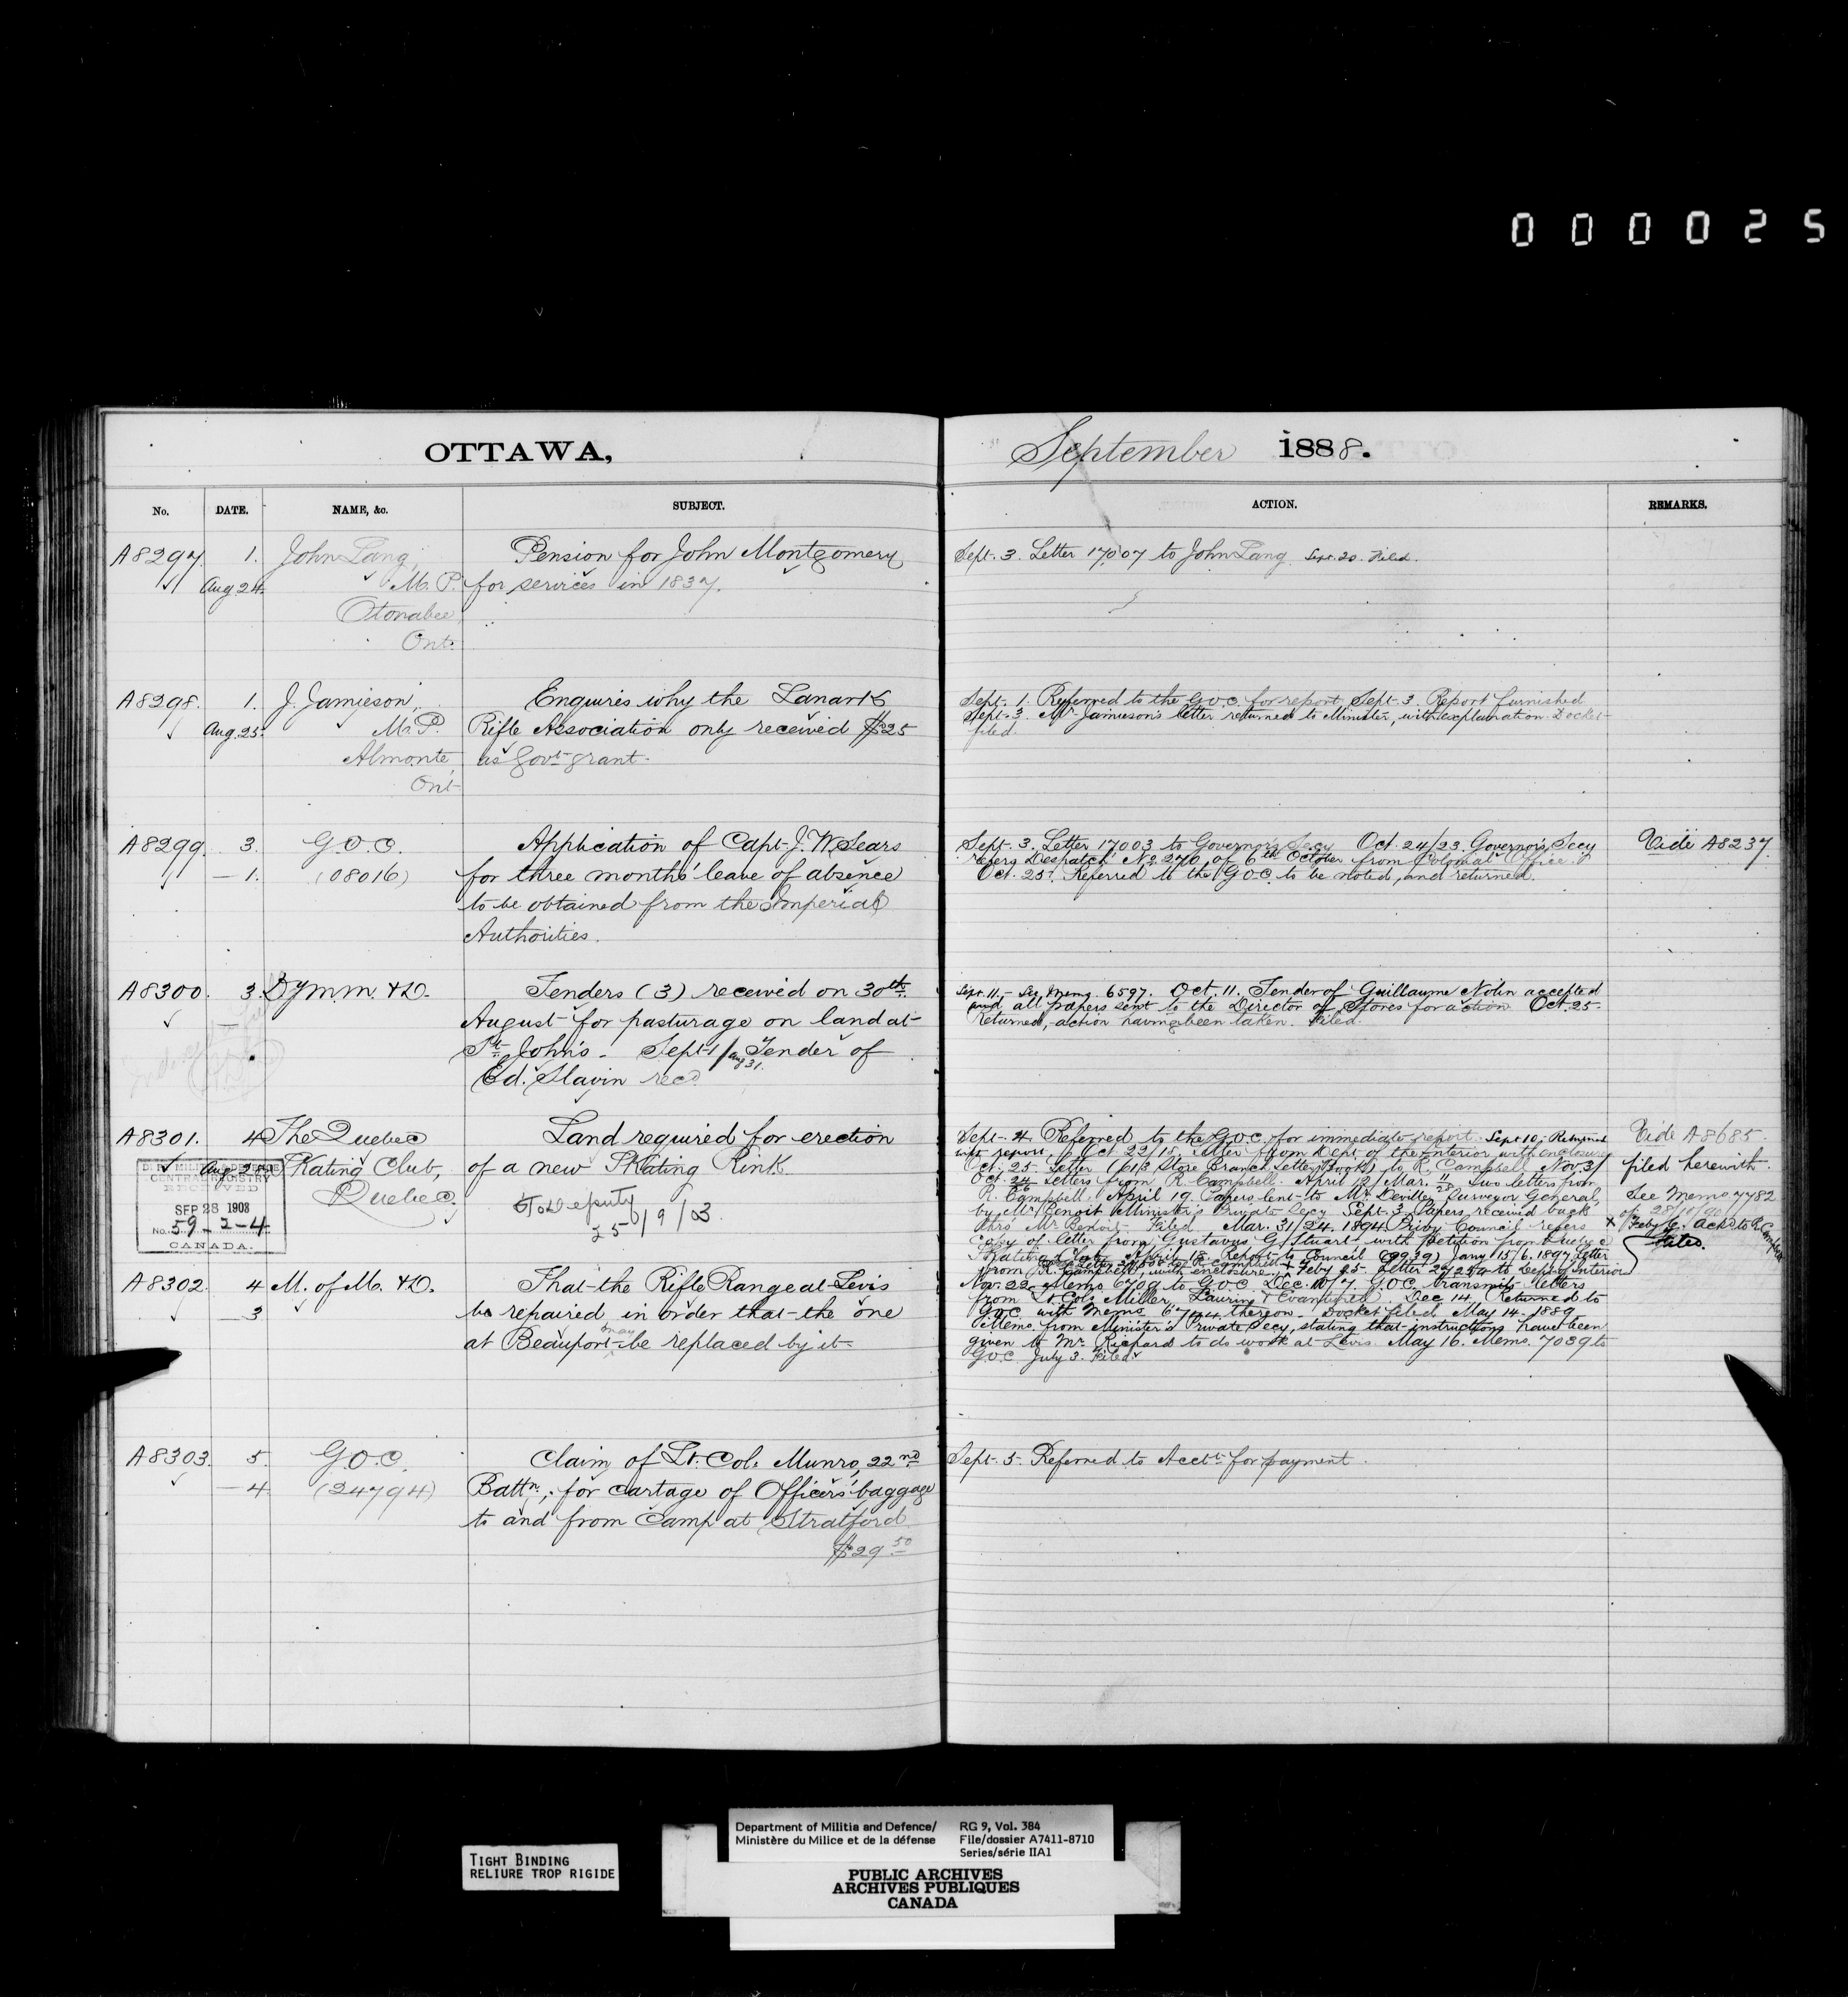 000025
OTTAWA,
September 1888.
No. DATE. NAME, &c. SUBJECT. ACTION. REMARKS.
A8297. 1. John Lang, Pension for John Montgomery
Aug 24. M.P. for services in 1837.
Otonabee
Ont.
Sept. 3. Letter 17007 to John Lang. Sept. 20. Filed.
A8298. 1. J. Jamieson, Enquires why the Lanark
Aug. 25. M.P. Rifle Association only received $25
Almonte, as Govt grant.
Ont
Sept. 1. Referred to the G.O.C. for report. Sept. 3. Report furnished
Sept. 3. Mr. Jamieson's letter returned to Minister, with explanation. Docket
filed.
A8299. 3. G.O.C. Application of Capt. J. W. Sears
— 1. (08016) for three months' leave of absence
to be obtained from the Imperial
Authorities.
Sept. 3. Letter 17003 to Governor's Secy Oct. 24/23. Governor's Secy
refers Despatch No 270, of 6th October from Colonial Office.
Oct. 25. Referred to the G.O.C. to be noted, and returned.
Vide A8237.
A8300. 3. Dy M.M. & D. Tenders (3) received on 30th
August for pasturage on land at
St. John's. Sept 1/Aug 31. Tender of
Ed. Slavin recd
Sept. 11. See Memo. 6597. Oct. 11. Tender of Guillaume Nolin accepted
and all papers sent to the Director of Stores for action Oct. 25.
Returned, action having been taken. Filed.
A8301. 4 The Quebec Land required for erection
Aug 27 Skating Club, of a new Skating Rink.
Quebec.
To Deputy
25/9/03
D. OF MILITIA & DEFENCE
CENTRAL REGISTRY
RECEIVED
SEP 28 1903
No. 59-2-4
CANADA.
Sept. 4. Referred to the G.O.C. for immediate report. Sept 10, Returned
with report. Oct 22/15, Letter from Dept. of the Interior with enclosure
Oct. 25. Letter (613 Store Branch Letter Book) to R. Campbell. Nov 3/
Oct. 24 Letters from R. Campbell. April 12/Mar. Two letters from
R. Campbell. April 19. Papers lent to Mr. Deville, Surveyor General,
by Mr. Benoit Minister's Private Secy Sept. 3. Papers received back
thro' Mr Benoit. Filed Mar. 31/24. 1894. Privy Council refers
copy of letter from Gustavus G. Stuart with Petition from Quebec
Skating Club. April 18. Report to Council (9939) Jany 15/6. 1897 Letter
from R. Campbell, with enclosure. x Feby 25. Letter 27254 to Deputy Interior
Vide A8685.
filed herewith.
See Memo 7782
of 28/10/90
x Feby 6. Ackd to R. Campbell
Filed.
A8302. 4 M. of M. & D. That the Rifle Range at Levis
— 3. be repaired in order that the one
at Beauport may be replaced by it.
Nov. 22. Memo 6709 to G.O.C. Dec. 10/7 G.O.C. transmits letters
from Lt. Cols Miller, Laurin & Evanturel. Dec 14. Returned to
GOC with Memo 6744 thereon. Docket filed. May 14. 1889
Memo. from Minister's Private Secy, stating that instructions have been
given to Mr. Richard to do work at Levis. May 16. Memo. 7039 to
G.O.C. July 3. Filed.
A8303. 5. G.O.C. Claim of Lt. Col. Munro, 22nd
— 4. (24794) Battn., for cartage of Officers' baggage
to and from Camp at Stratford
$29.50
Sept. 5. Referred to Acctt for payment.
TIGHT BINDING
RELIURE TROP RIGIDE
Department of Militia and Defence/
Ministère du Milice et de la défense
RG 9, Vol. 384
File/dossier A7411-8710
Series/série IIA1
PUBLIC ARCHIVES
ARCHIVES PUBLIQUES
CANADA